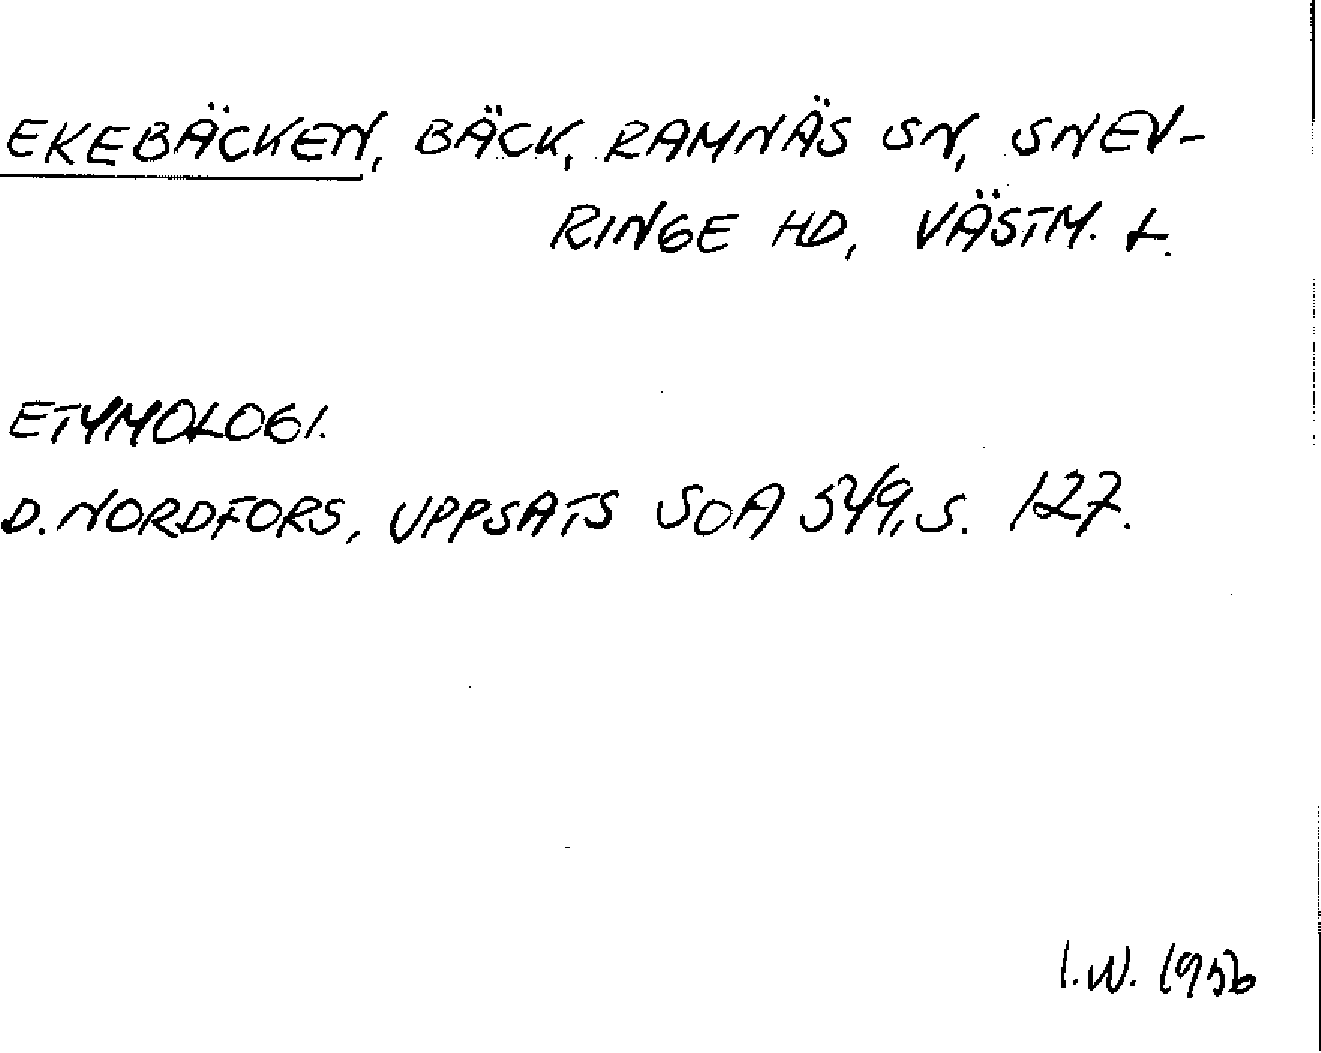 EKEBÄCKEN, BÄCK, RAMNÄS SN, SNEV-
RINGE HD, VÄSTM. L.
ETYMOLOGI.
D. NORDFORS, UPPSATS SOA 549, S. 127.
I.W. 1956